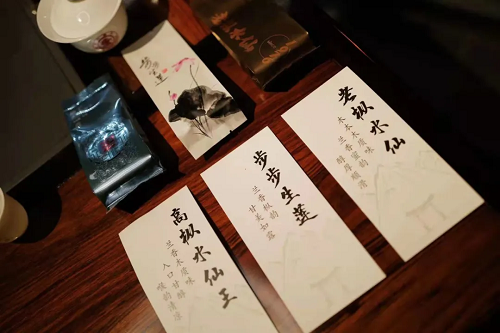 步步生莲
老枞水仙
兰香蜜韵
醇厚顺滑
步步生莲
兰香枞韵
甘美如露
高枞水仙王
兰香木质味
入口甘醇